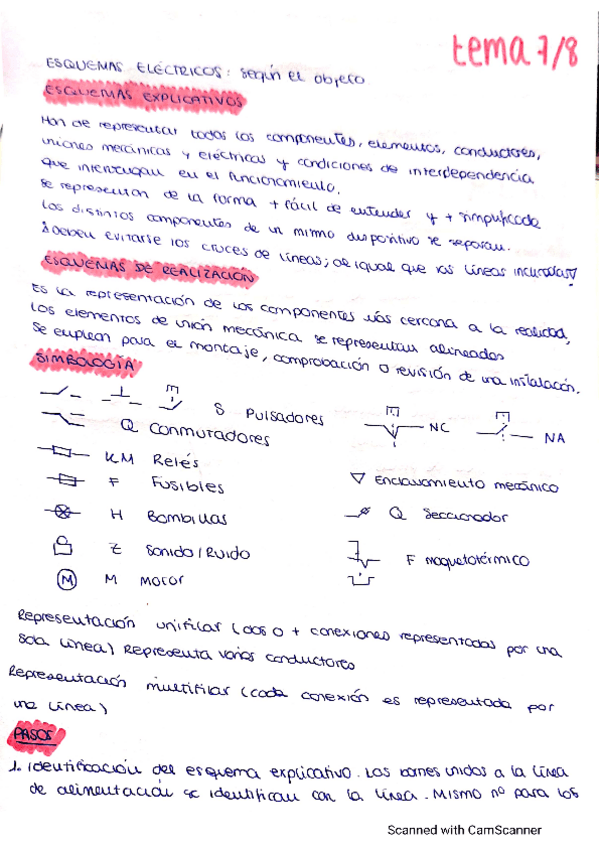 tema 7/8
ESQUEMAS ELÉCTRICOS: según el objeto
ESQUEMAS EXPLICATIVOS
Han de representar todos los componentes, elementos, conductores,
uniones mecánicas y eléctricas y condiciones de interdependencia
que intervengan en el funcionamiento.
Se representan de la forma + fácil de entender y + simplificada
Los distintos componentes de un mismo dispositivo se separan.
deben evitarse los cruces de líneas; al igual que las líneas inclinadas
ESQUEMAS DE REALIZACIÓN
Es la representación de los componentes más cercana a la realidad,
Los elementos de unión mecánica se representan alineados
Se emplean para el montaje, comprobación o revisión de una instalación.
SIMBOLOGÍA
S Pulsadores
NC
NA
Q Conmutadores
KM Relés
F Fusibles
▽ Enclavamiento mecánico
H Bombillas
Q Seccionador
Z Sonido/Ruido
F magnetotérmico
M M motor
Representación unifilar (dos o + conexiones representadas por una
sola línea) Representa varios conductores
Representación multifilar (cada conexión es representada por
una línea)
PASOS
1. Identificación del esquema explicativo. Los bornes unidos a la línea
de alimentación se identifican con la línea. Mismo nº para los
Scanned with CamScanner